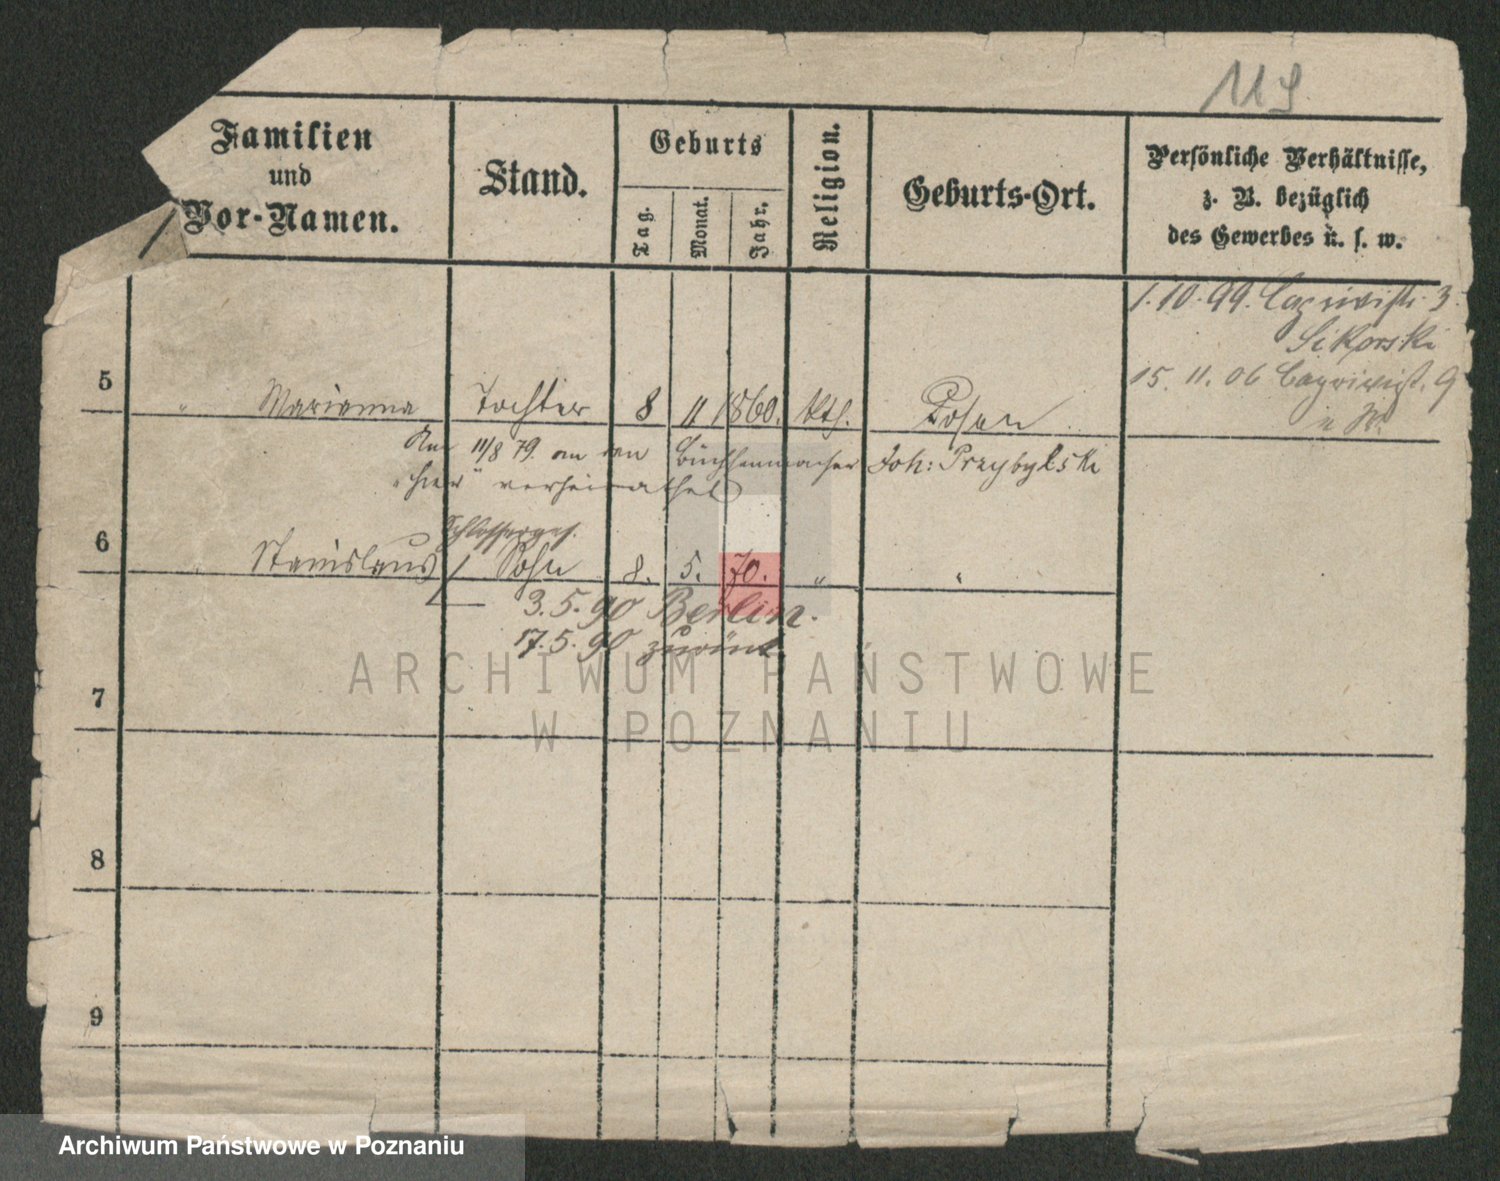 119
Familien
und
Vor-Namen.
Stand.
Geburts
Tag.
Monat.
Jahr.
Religion.
Geburts-Ort.
Persönliche Verhältnisse,
z. B. bezüglich
des Gewerbes u. s. w.
1. 10. 99. Caprivistr. 3.
Sikorski
15. 11. 06 Caprivistr. 9
5 " Marianna Tochter 8 11 1860. kth. Posen
Am 11/8 79. an den Büchsenmacher Joh: Przybylski
"hier" verheirathet
Schlosserges.
6 Stanislaus / Sohn 8. 5. 70. " "
3. 5. 90 Berlin.
17. 5. 90 zurück.
7
8
9
ARCHIWUM PAŃSTWOWE
W POZNANIU
Archiwum Państwowe w Poznaniu